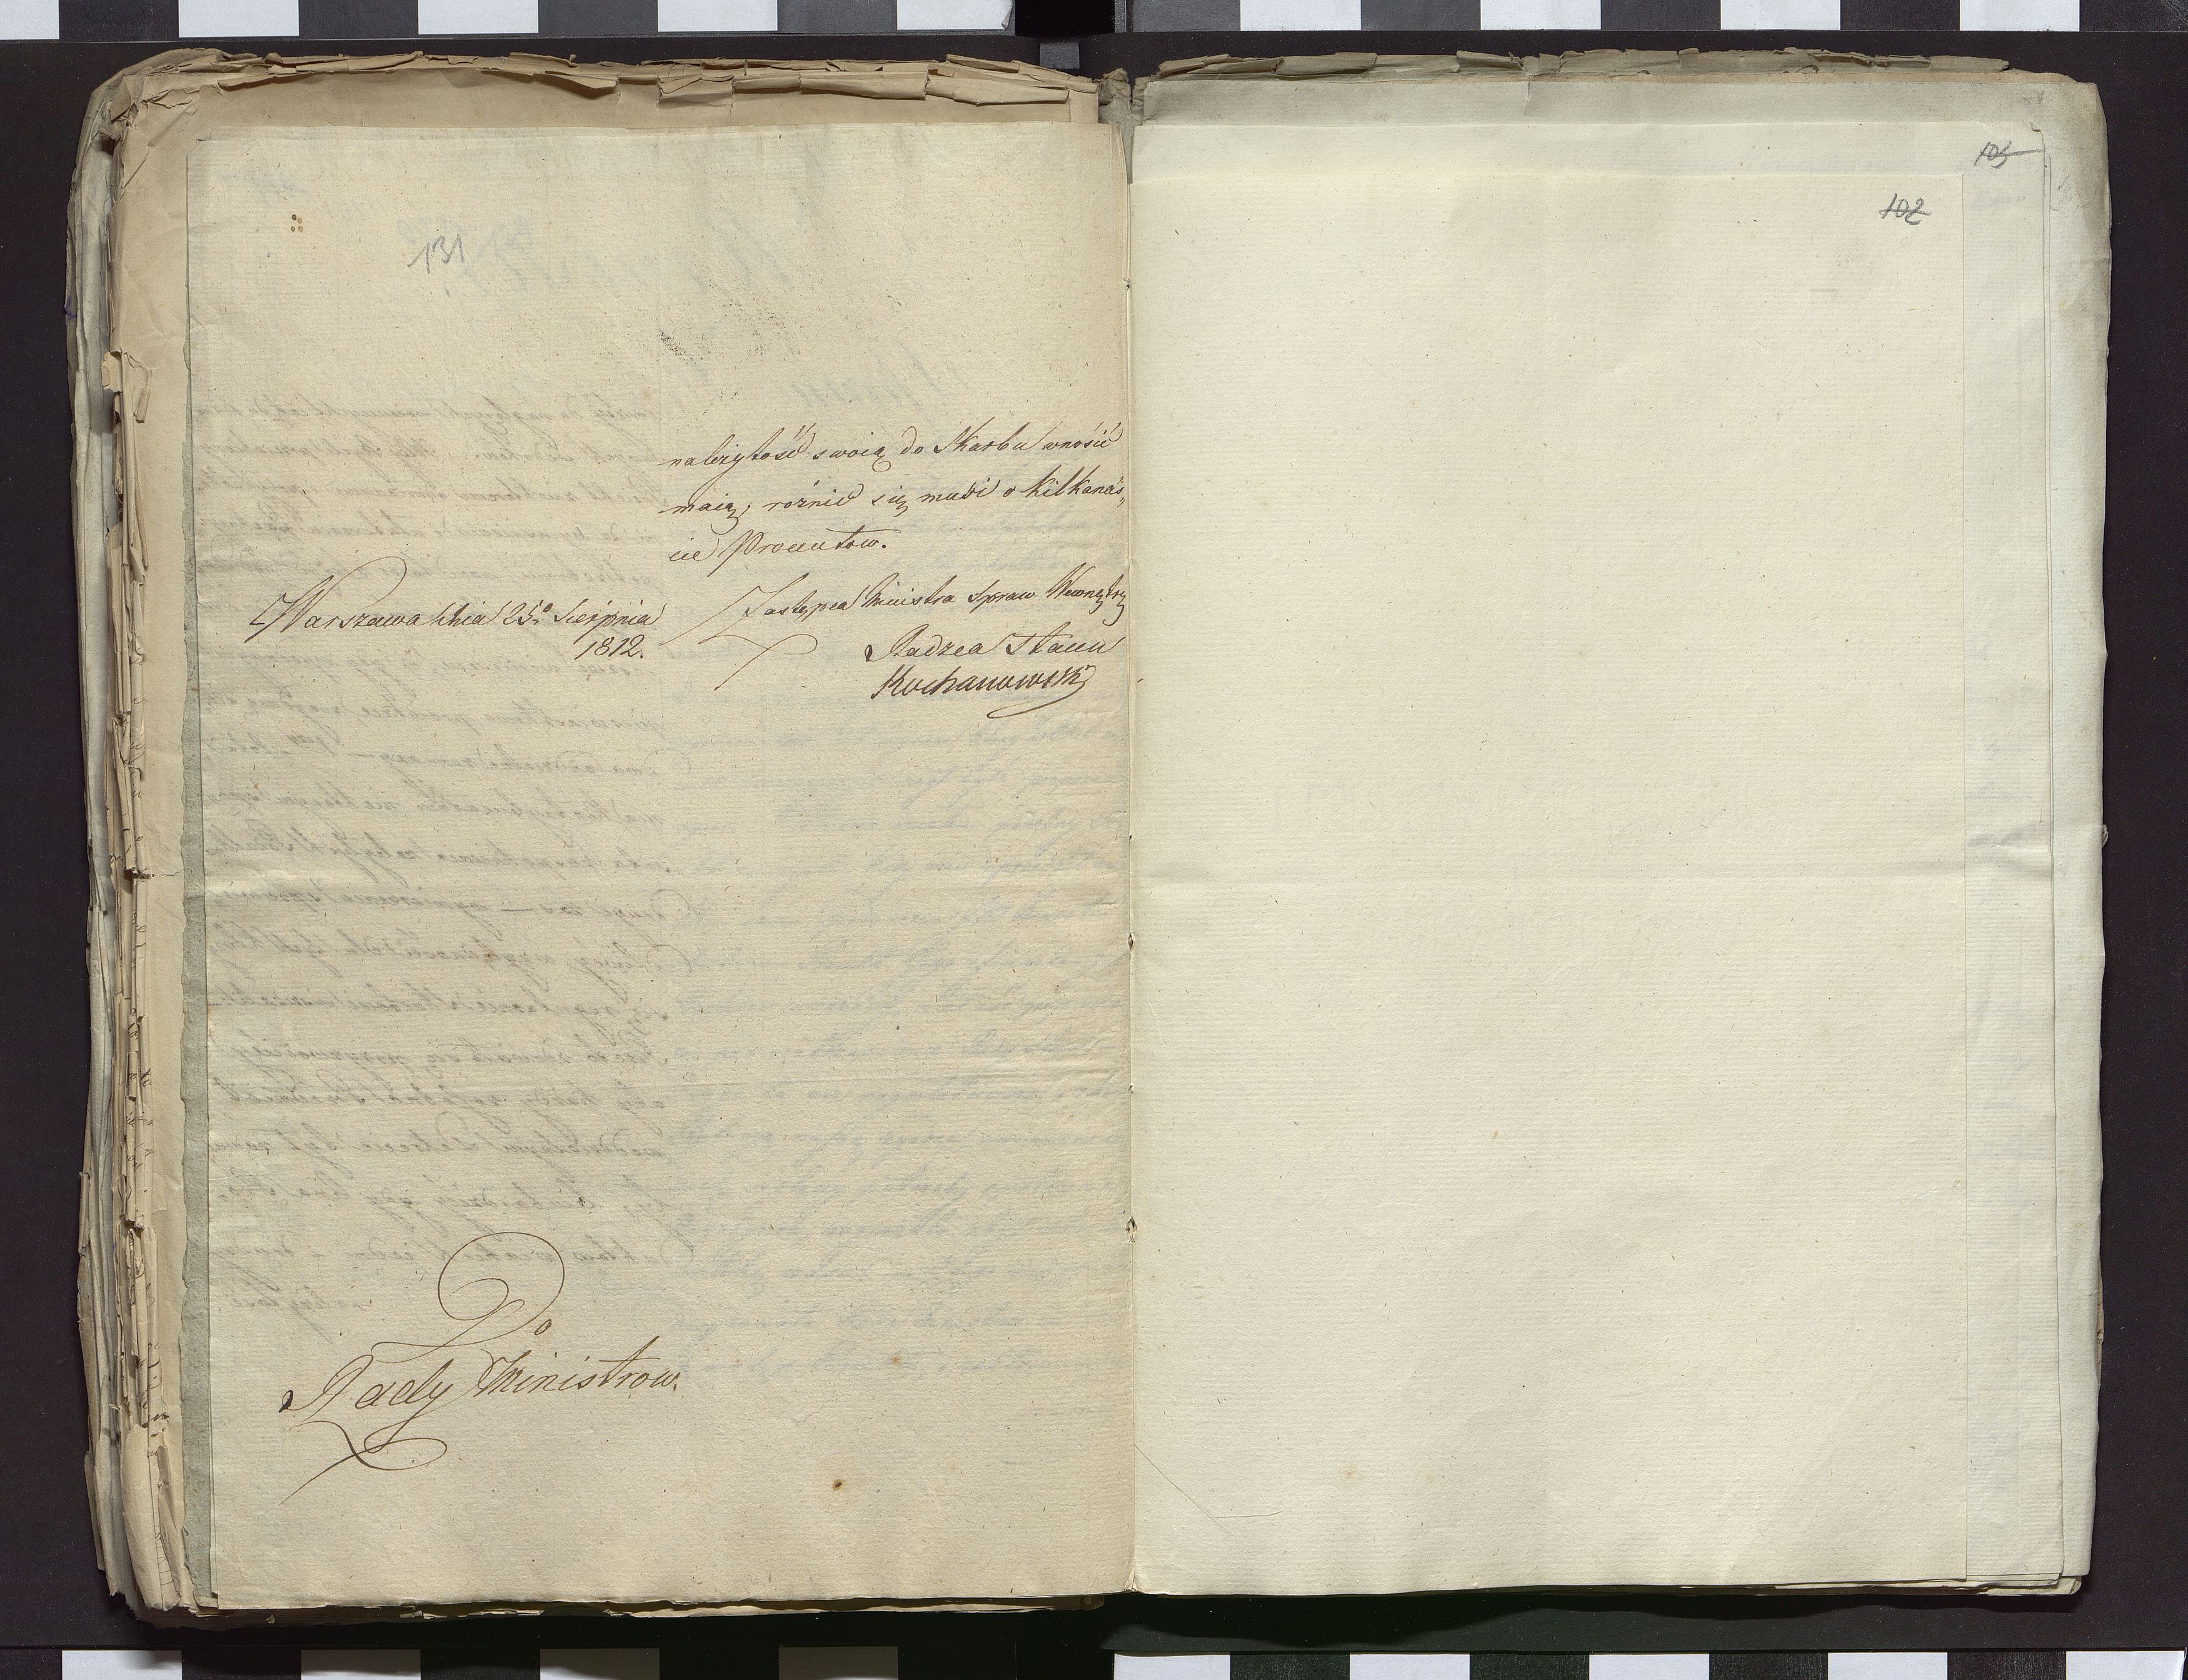 131
należytość swoią do Skarbu wnosić
maią, rożnić się musi o kilkanaś„
cie Procentow.
Warszawa dnia 25º Sierpnia
1812.
Zastępca Ministra Spraw Wewnętrz
Radzca Stanu
Kochanowski
Do
Rady Ministrow.
105
102